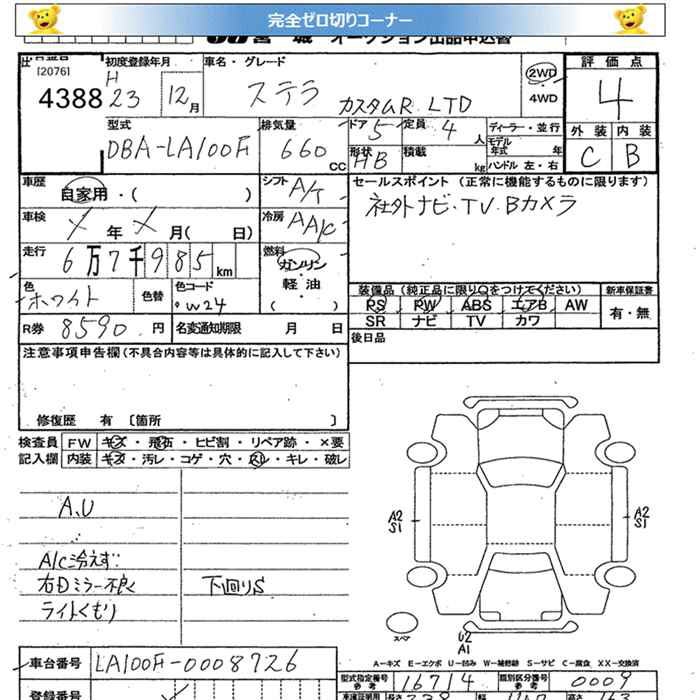 完全ゼロ切りコーナー
JU宮城 オークション出品申込書
出品番号
[2076]
4388
初度登録年月
H
23 12月
車名・グレード
ステラ カスタムR LTD
2WD
・
4WD
評価点
4
外装 内装
C B
型式
DBA-LA100F
排気量
660 CC
ドア 5
定員 4 人
形状 HB
積載 kg
ディーラー・並行
モデル
年式 年
ハンドル 左・右
車歴
自家用・( )
シフト A/T
セールスポイント (正常に機能するものに限ります)
社外ナビ・TV・Bカメラ
車検
メ 年 メ 月( 日)
冷房 AA/C
走行
6万7千985km
燃料
ガソリン
・
軽油
( )
色
ホワイト
色替
色コード
W24
装備品 (純正品に限り○をつけてください) 新車保証書
PS PW ABS エアB AW
SR ナビ TV カワ
有・無
R券 8590円
名変通知期限 月 日
後日品
注意事項申告欄 (不具合内容等は具体的に記入して下さい)
修復歴 有 〔箇所 〕
検査員 FW キズ・飛石・ヒビ割・リペア跡・×要
記入欄 内装 キズ・汚レ・コゲ・穴・スレ・キレ・破レ
A.U
A/C冷えず
右Dミラー不良
ライトくもり
下回りS
A2
S1
A2
S1
スペア
U2
A1
A－キズ E－エクボ U－凹み W－補修跡 S－サビ C－腐食 XX－交換済
車台番号 LA100F-0008726
型式指定番号
参考
16714
類別区分番号
参考
0009
登録番号